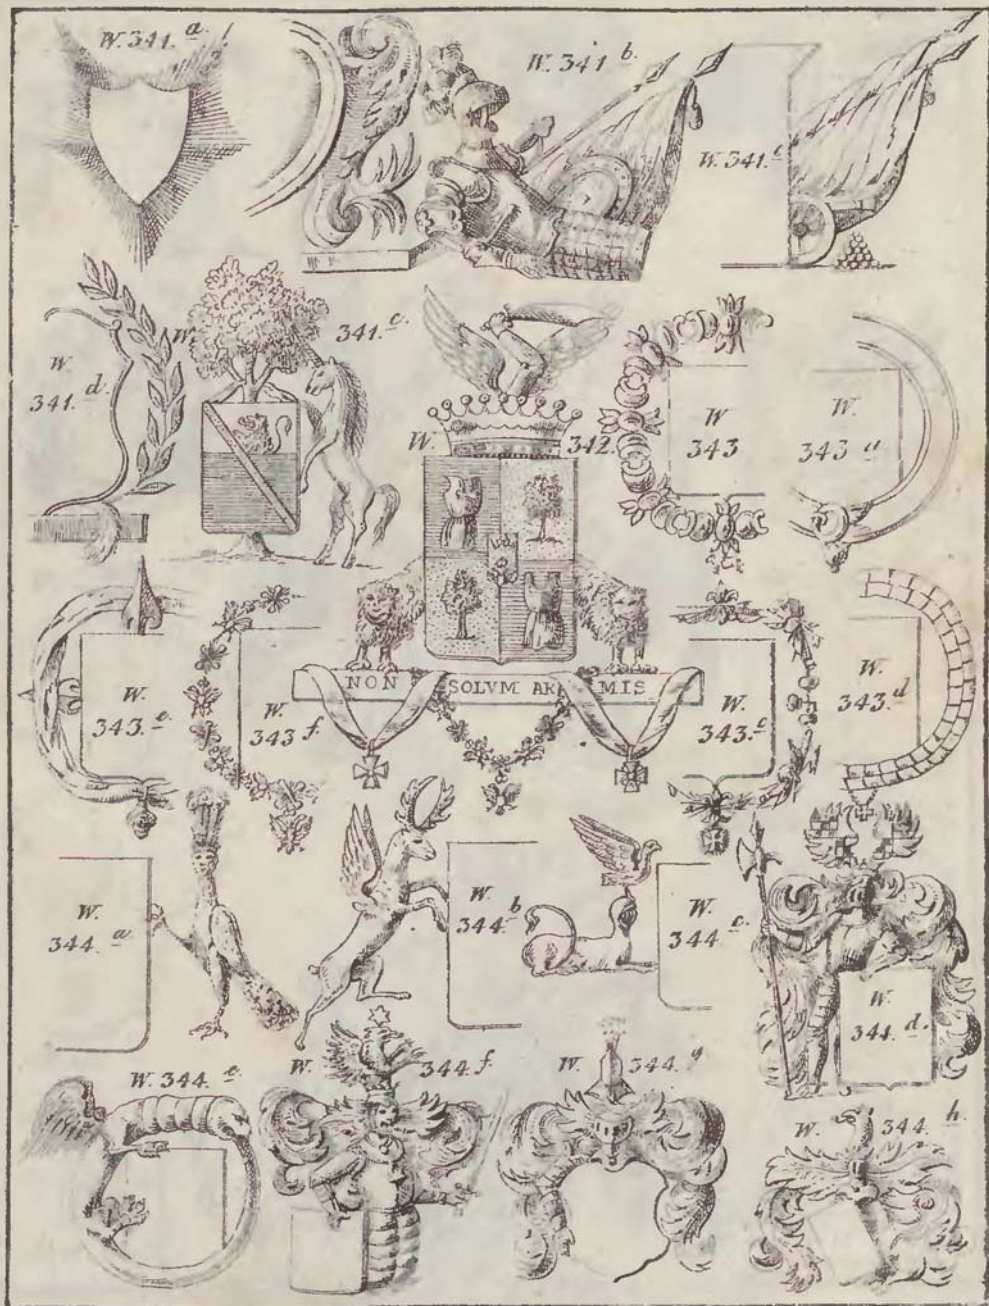 W. 341. a.
W. 341 b.
W. 341. c
W
341. d.
W. 341. c.
W. 342.
W
343
W.
343 a
W.
343. e.
W.
343 f.
NON SOLVM AR MIS
W.
343. c
W.
343. d
W.
344. a
W.
344. b
W.
344 c.
W.
344. d.
W. 344. e.
W. 344. f.
W. 344. g
W. 344. h.